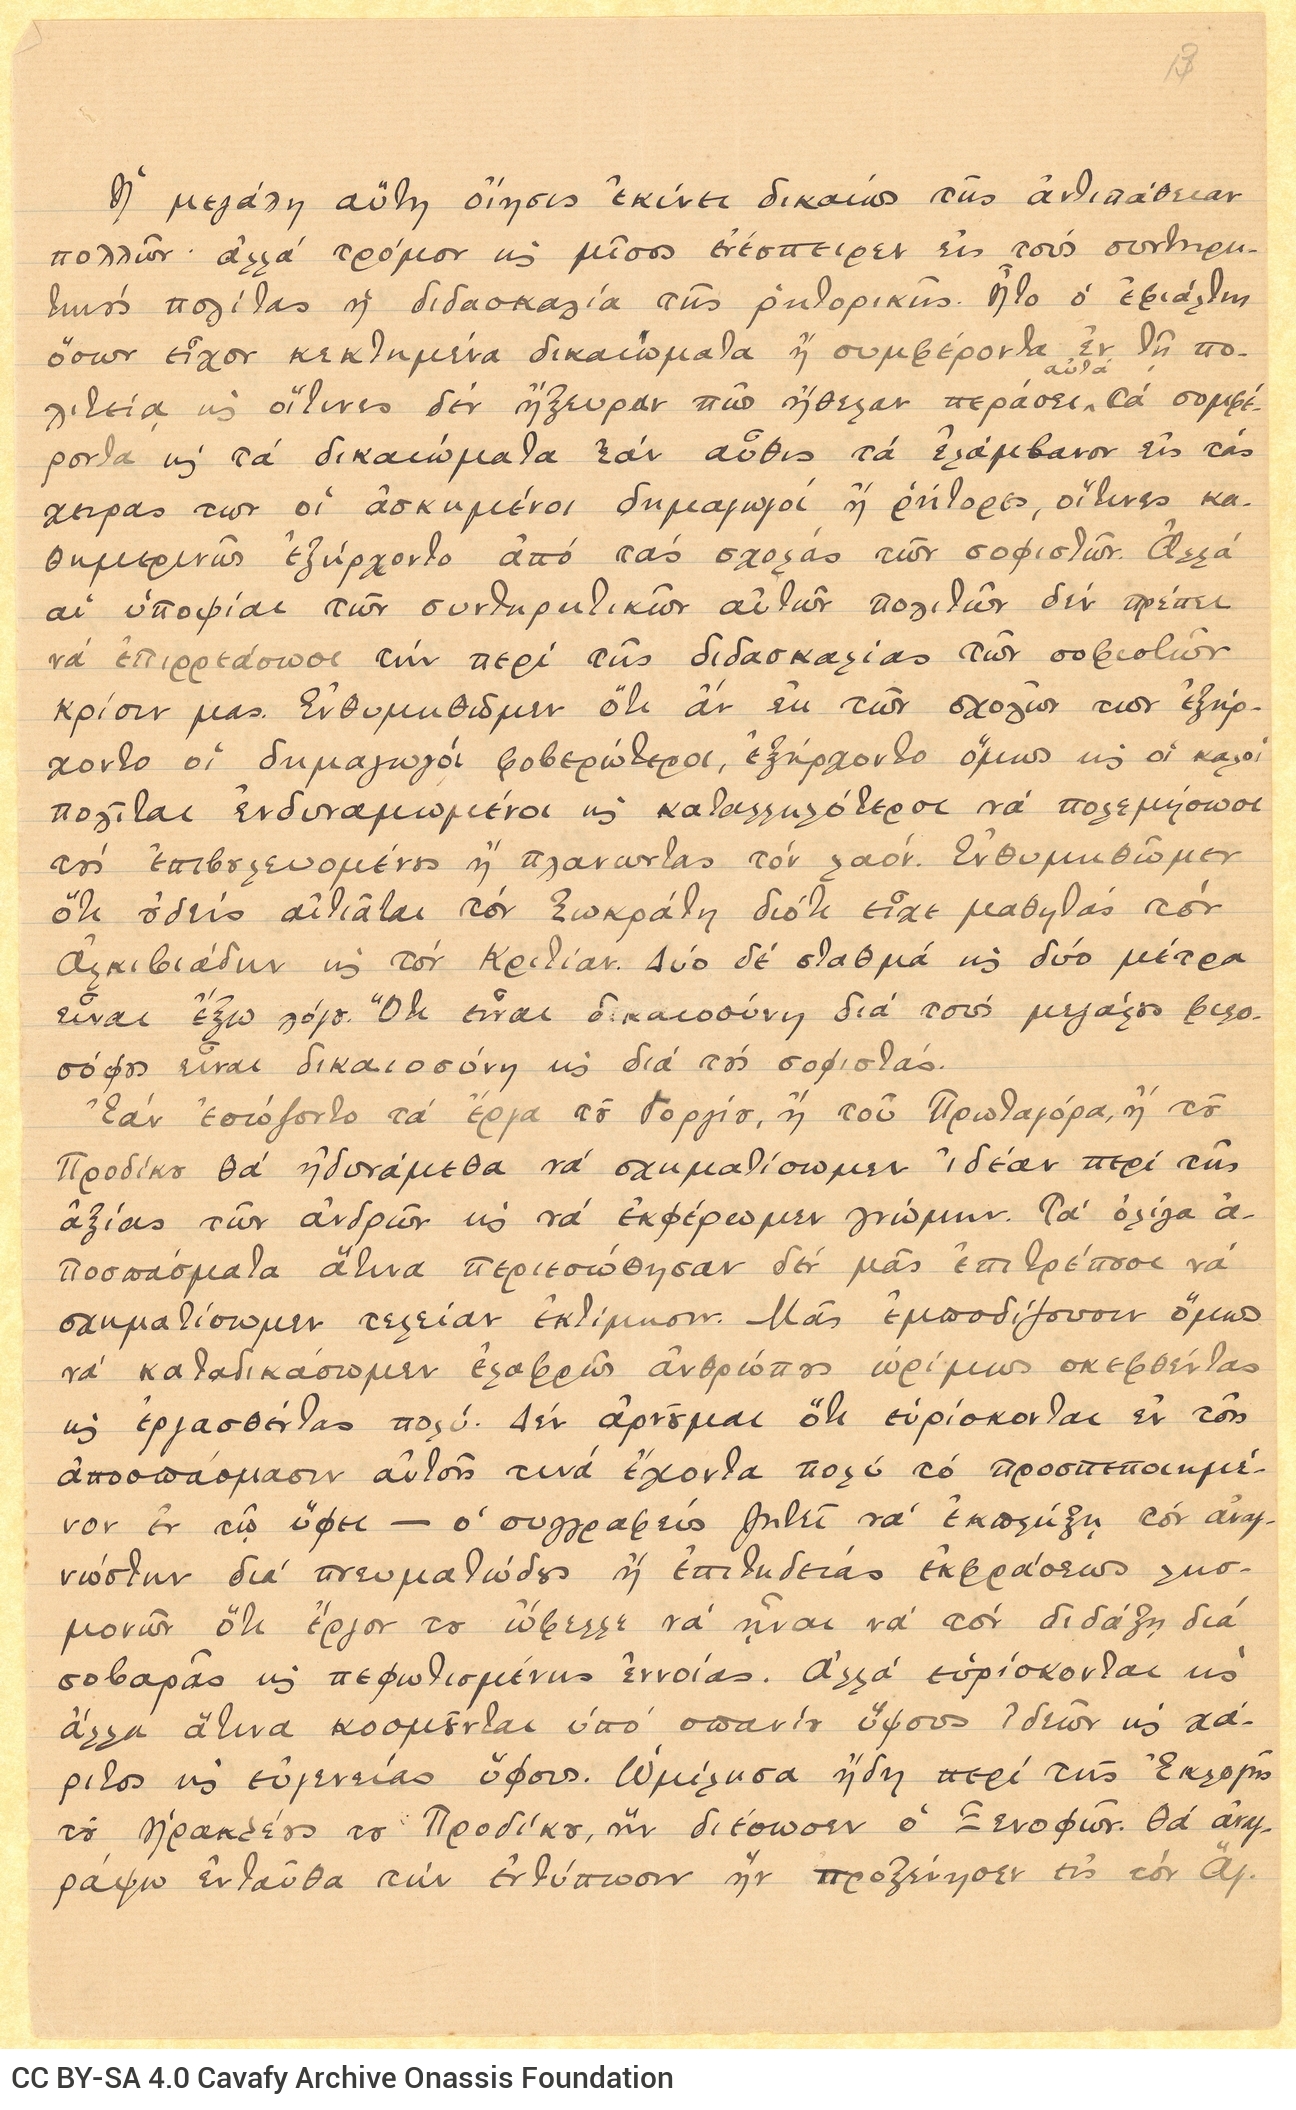 13
Ἡ μεγάλη αὕτη οἴησις ἐκίνει δικαίως τῆς ἀντιπάθειαν
πολλῶν· ἀλλά τρόμον κ̀ μῖσος ἐνέσπειρεν εἰς τούς συντηρη-
τικούς πολίτας ἡ διδασκαλία τῆς ῥητορικῆς. Ἦτο ὁ ἐφιάλτης
ὅσων εἶχον κεκτημένα δικαιώματα ἤ συμφέροντα ἐν τῇ πο-
λιτείᾳ κ̀ οἵτινες δέν ἤξευραν πῶς ἤθελαν περάσει αὐτά τά συμφέ-
ροντα κ̀ τά δικαιώματα ἐάν αὖθις τά ἐλάμβανον εἰς τάς
χειρας των οἱ ἀσκημένοι δημαγωγοί ἤ ῥήτορες, οἵτινες κα-
θημερινῶς ἐξήρχοντο ἀπό τάς σχολάς τῶν σοφιστῶν. Ἀλλά
αἱ ὑποψίαι τῶν συντηρητικῶν αὐτῶν πολιτῶν δέν πρέπει
νά ἐπιρρεάσωσι τήν περί τῆς διδασκαλίας τῶν σοφιστῶν
κρίσιν μας. Ἐνθυμηθῶμεν ὅτι ἄν ἐκ τῶν σχολῶν των ἐξήρ-
χοντο οἱ δημαγωγοί φοβερώτεροι, ἐξήρχοντο ὅμως κ̀ οἱ καλοί
πολῖται ἐνδυναμωμένοι κ̀ καταλληλότεροι νά πολεμήσωσι
τούς ἐπιβουλευομένους ἤ πλανωντας τόν λαόν. Ἐνθυμηθῶμεν
ὅτι οὐδείς αἰτιᾶται τόν Σωκράτη διότι εἶχε μαθητάς τόν
Ἀλκιβιάδην κ̀ τόν Κριτίαν. Δύο δέ σταθμά κ̀ δύο μέτρα
εἶναι ἔξω λόγου. Ὅτι εἶναι δικαιοσύνη διά τούς μεγάλους φιλο-
σόφους εἶναι δικαιοσύνη κ̀ διά τούς σοφιστάς.
Ἐάν ἐσώζοντο τά ἔργα τοῦ Γοργίου, ἤ τοῦ Πρωταγόρα, ἤ τοῦ
Προδίκου θά ἠδυνάμεθα νά σχηματίσωμεν ἰδέαν περί τῆς
ἀξίας τῶν ἀνδρῶν κ̀ νά ἐκφέρωμεν γνώμην. Τά ὀλίγα ἀ-
ποσπάσματα ἅτινα περιεσώθησαν δέν μᾶς ἐπιτρέπουσι νά
σχηματίσωμεν τελείαν ἐκτίμησιν. Μᾶς ἐμποδίζουσιν ὅμως
νά καταδικάσωμεν ἐλαφρῶς ἀνθρώπους ὡρίμως σκεφθέντας
κ̀ ἐργασθέντας πολύ. Δέν ἀρνοῦμαι ὅτι εὑρίσκονται ἐν τοῖς
ἀποσπάσμασιν αὐτοῖς τινά ἔχοντα πολύ τό προσπεποιημέ-
νον ἐν τῷ ὕφει — ὁ συγγραφεύς ζητεῖ νά ἐκπλήξῃ τόν ἀναγ-
νώστην διά πνευματώδους ἤ ἐπιτηδείας ἐκφράσεως λησ-
μονῶν ὅτι ἔργον του ὤφελλε νά ᾖναι νά τόν διδάξῃ διά
σοβαρᾶς κ̀ πεφωτισμένης ἐννοίας. Ἀλλά εὑρίσκονται κ̀
ἄλλα ἅτινα κοσμοῦνται ὑπό σπανίου ὕψους ἰδεῶν κ̀ χά-
ριτος κ̀ εὐγενείας ὕφους. Ὡμίλησα ἤδη περί τῆς Ἐκλογῆς
τοῦ Ἡρακλέους του Προδίκου, ἥν διέσωσεν ὁ Ξενοφῶν. Θά ἀναγ-
ράψω ἐνταῦθα τήν ἐντύπωσιν ἥν προξένησεν εἰς τόν Ἄγ-
CC BY-SA 4.0 Cavafy Archive Onassis Foundation